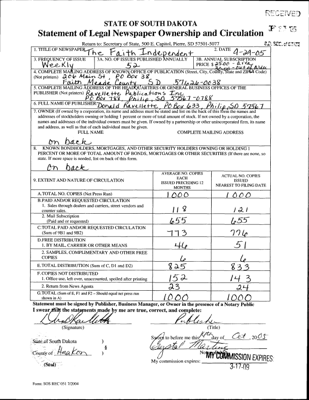 RECEIVED
STATE OF SOUTH DAKOTA
Statement of Legal Newspaper Ownership and Circulation
Return to: Secretary of State, 500 E. Capitol, Pierre, SD 57501-5077
1. TITLE OF NEWSPAPER The Faith Independent
2. DATE 9-29-05
3. FREQUENCY OF ISSUE Weekly
3A. NO. OF ISSUES PUBLISHED ANNUALLY 52
3B. ANNUAL SUBSCRIPTION PRICE
4. COMPLETE MAILING ADDRESS OF KNOWN OFFICE OF PUBLICATION (Street, City, County, State and Zip Code)
(Not printers) 206 Main St, PO Box 38
Faith Meade County SD 57626-0038
5. COMPLETE MAILING ADDRESS OF THE HEADQUARTERS OR GENERAL BUSINESS OFFICES OF THE
PUBLISHER (Not printer) Ravellette Publications Inc
PO Box 788, Philip, SD 57567-0788
6. FULL NAME OF PUBLISHER: Donald Ravellette, PO Box 633, Philip, SD 57567
7. OWNER (If owned by a corporation, its name and address must be stated and also the names and
addresses of stockholders owning or holding 1 percent or more of total amount of stock. If not owned by a corporation, the
names and addresses of the individual owners must be given. If owned by a partnership or other unincorporated firm, its name
and address, as well as that of each individual must be given.
FULL NAME COMPLETE MAILING ADDRESS
on back
8. KNOWN BONDHOLDERS, MORTGAGES, AND OTHER SECURITY HOLDERS OWNING OR HOLDING 1
PERCENT OR MORE OF TOTAL AMOUNT OF BONDS, MORTGAGES OR OTHER SECURITIES (If there are none, so
state. If more space is needed, list on back of this form.
on back
9. EXTENT AND NATURE OF CIRCULATION
AVERAGE NO. COPIES EACH ISSUES PRECEDING 12 MONTHS
ACTUAL NO. COPIES ISSUED NEAREST TO FILING DATE
A. TOTAL NO. COPIES (Net Press Run) 1000 1000
B. PAID AND/OR REQUESTED CIRCULATION
1. Sales through dealers and carriers, street vendors and
counter sales. 118 121
2. Mail Subscription
(Paid and or requested) 655 655
C. TOTAL PAID AND/OR REQUESTED CIRCULATION
(Sum of 9B1 and 9B2) 773 776
D. FREE DISTRIBUTION
1. BY MAIL, CARRIER OR OTHER MEANS 46 51
2. SAMPLES, COMPLIMENTARY AND OTHER FREE
COPIES 6 6
E. TOTAL DISTRIBUTION (Sum of C, D1 and D2) 825 833
F. COPIES NOT DISTRIBUTED
1. Office use, left over, unaccounted, spoiled after printing 152 143
2. Return from News Agents 23 24
G. TOTAL (Sum of E, F1 and F2 - Should equal net press run
shown in A) 1000 1000
Statement must be signed by Publisher, Business Manager, or Owner in the presence of a Notary Public
I swear that the statements made by me are true, correct, and complete:
Publisher
(Signature) (Title)
State of South Dakota )
County of Haakon )
Sworn to before me this day of Oct 2005
Crystal Martine
(Seal)
My commission expires:
MY COMMISSION EXPIRES
3-17-09
Form: SOS REC 051 7/2004